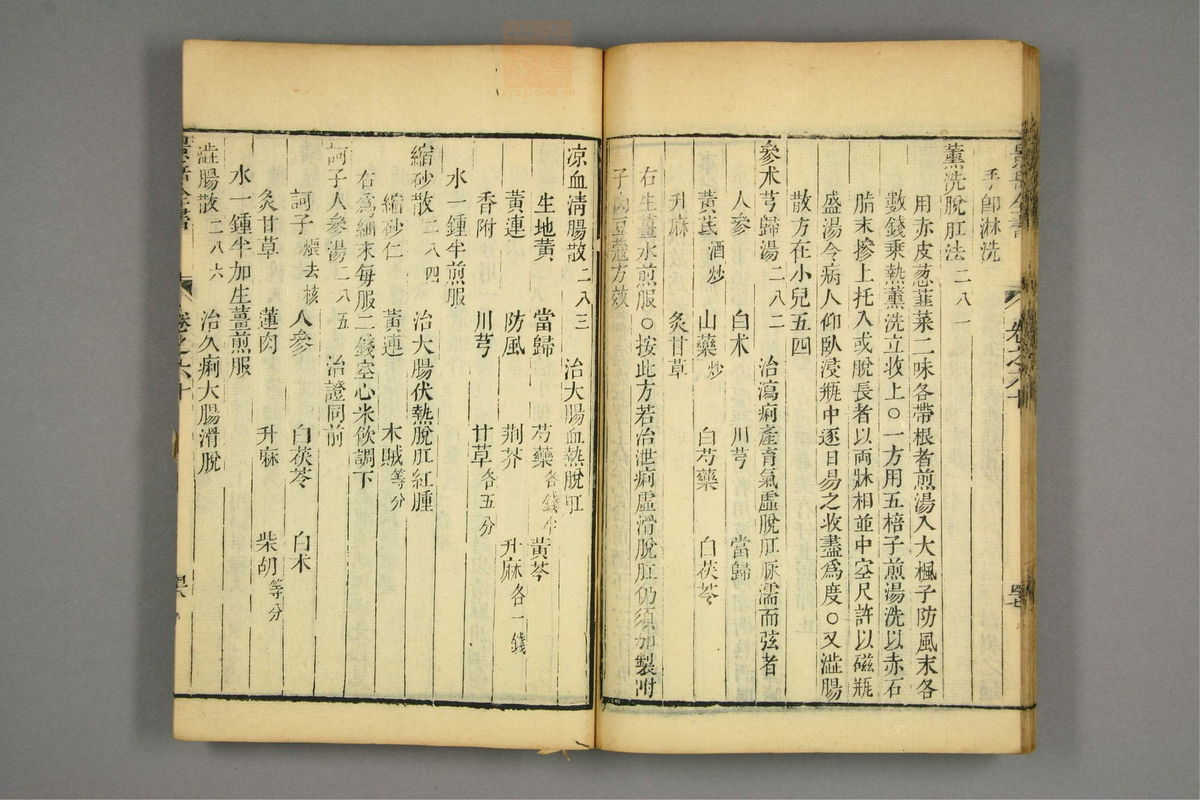 景岳全書 卷之六十
手即淋洗
薰洗脫肛法二八一
用赤皮葱韭菜二味各帶根者煎湯入大楓子防風末各
數錢乘熱薰洗立收上○一方用五棓子煎湯洗以赤石
脂末摻上托入或脫長者以兩牀相並中空尺許以磁瓶
盛湯令病人仰臥浸瓶中逐日易之收盡爲度○又澁腸
散方在小兒五四
參朮芎歸湯二八二 治瀉痢產育氣虛脫肛脉濡而弦者
人參 白朮 川芎 當歸
黃茋酒炒 山藥炒 白芍藥 白茯苓
升麻 炙甘草
右生薑水煎服○按此方若治泄痢虛滑脫肛仍須加製附
子肉豆蔻方效
凉血清腸散二八三 治大腸血熱脫肛
生地黃 當歸 芍藥各錢半 黃芩
黃連 防風 荆芥 升麻各一錢
香附 川芎 甘草各五分
水一鍾半煎服
縮砂散二八四 治大腸伏熱脫肛紅腫
縮砂仁 黃連 木賊等分
右爲細末每服二錢空心米飲調下
訶子人參湯二八五 治證同前
訶子煨去核 人參 白茯苓 白朮
炙甘草 蓮肉 升麻 柴胡等分
水一鍾半加生薑煎服
澁腸散二八六 治久痢大腸滑脫
景岳全書 卷之六十